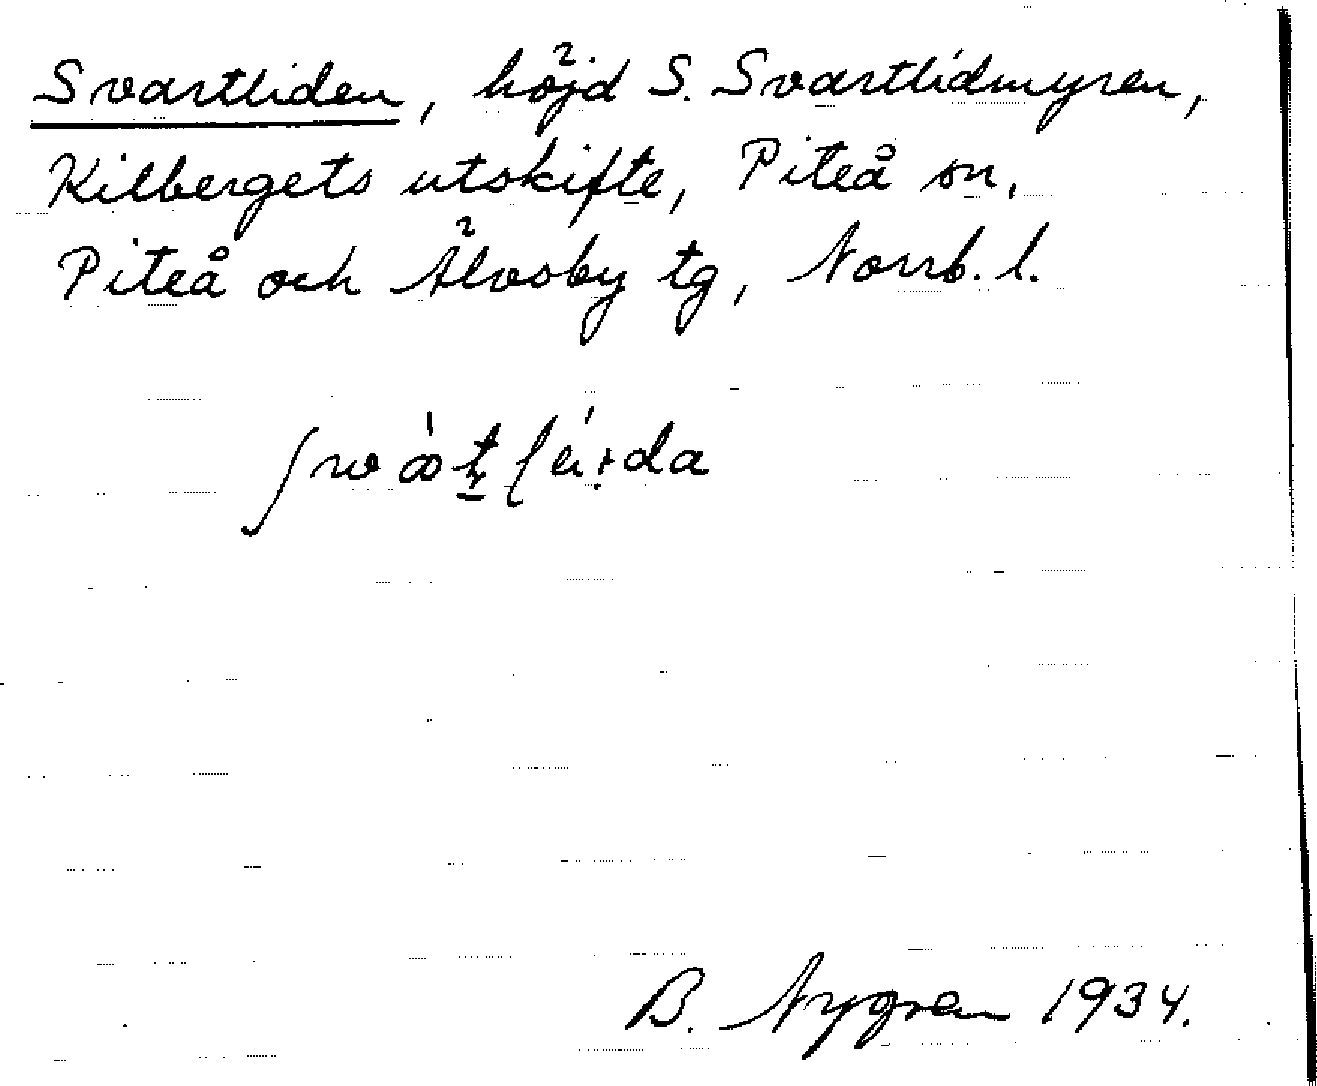 Svartliden, höjd S. Svartlidmyren,
Kilbergets utskifte, Piteå sn,
Piteå och Älvsby tg, Norrb. l.
B. Nygren 1934.